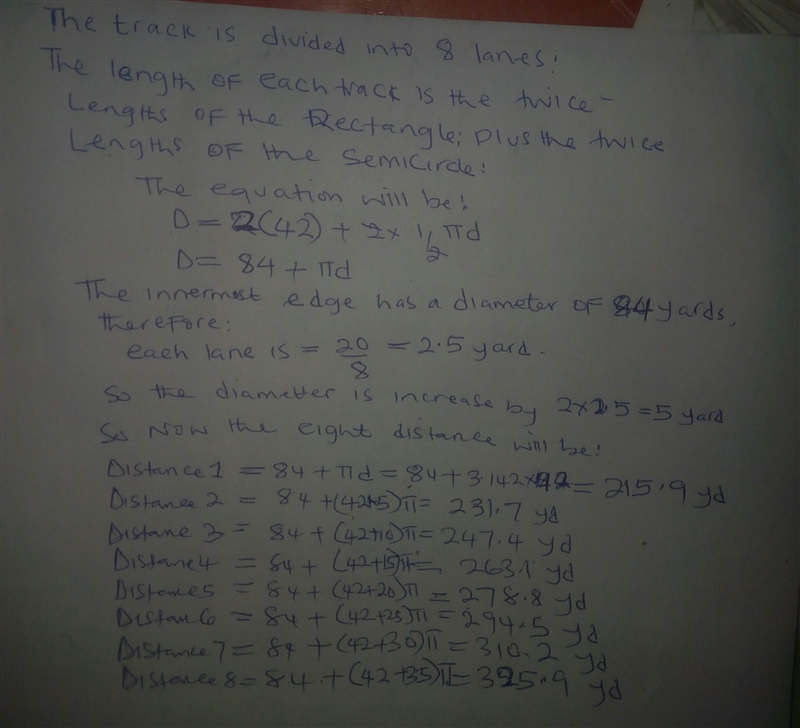 The track is divided into 8 lanes:
The length of each track is the twice -
Lengths of the Rectangle; plus the twice
Lengths of the semicircle:
The equation will be:
D = 2(42) + 2 x 1/2 πd
D = 84 + πd
The innermost edge has a diameter of 84 yards,
therefore:
each lane is = 20/8 = 2.5 yard.
So the diametter is increase by 2x2.5 = 5 yard
So Now the eight distance will be:
Distance 1 = 84 + πd = 84 + 3.142x42 = 215.9 yd
Distance 2 = 84 + (42+5)π = 231.7 yd
Distane 3 = 84 + (42+10)π = 247.4 yd
Distane 4 = 84 + (42+15)π = 263.1 yd
Distance 5 = 84 + (42+20)π = 278.8 yd
Distan 6 = 84 + (42+25)π = 294.5 yd
Distance 7 = 84 + (42+30)π = 310.2 yd
Distance 8 = 84 + (42+35)π = 325.9 yd